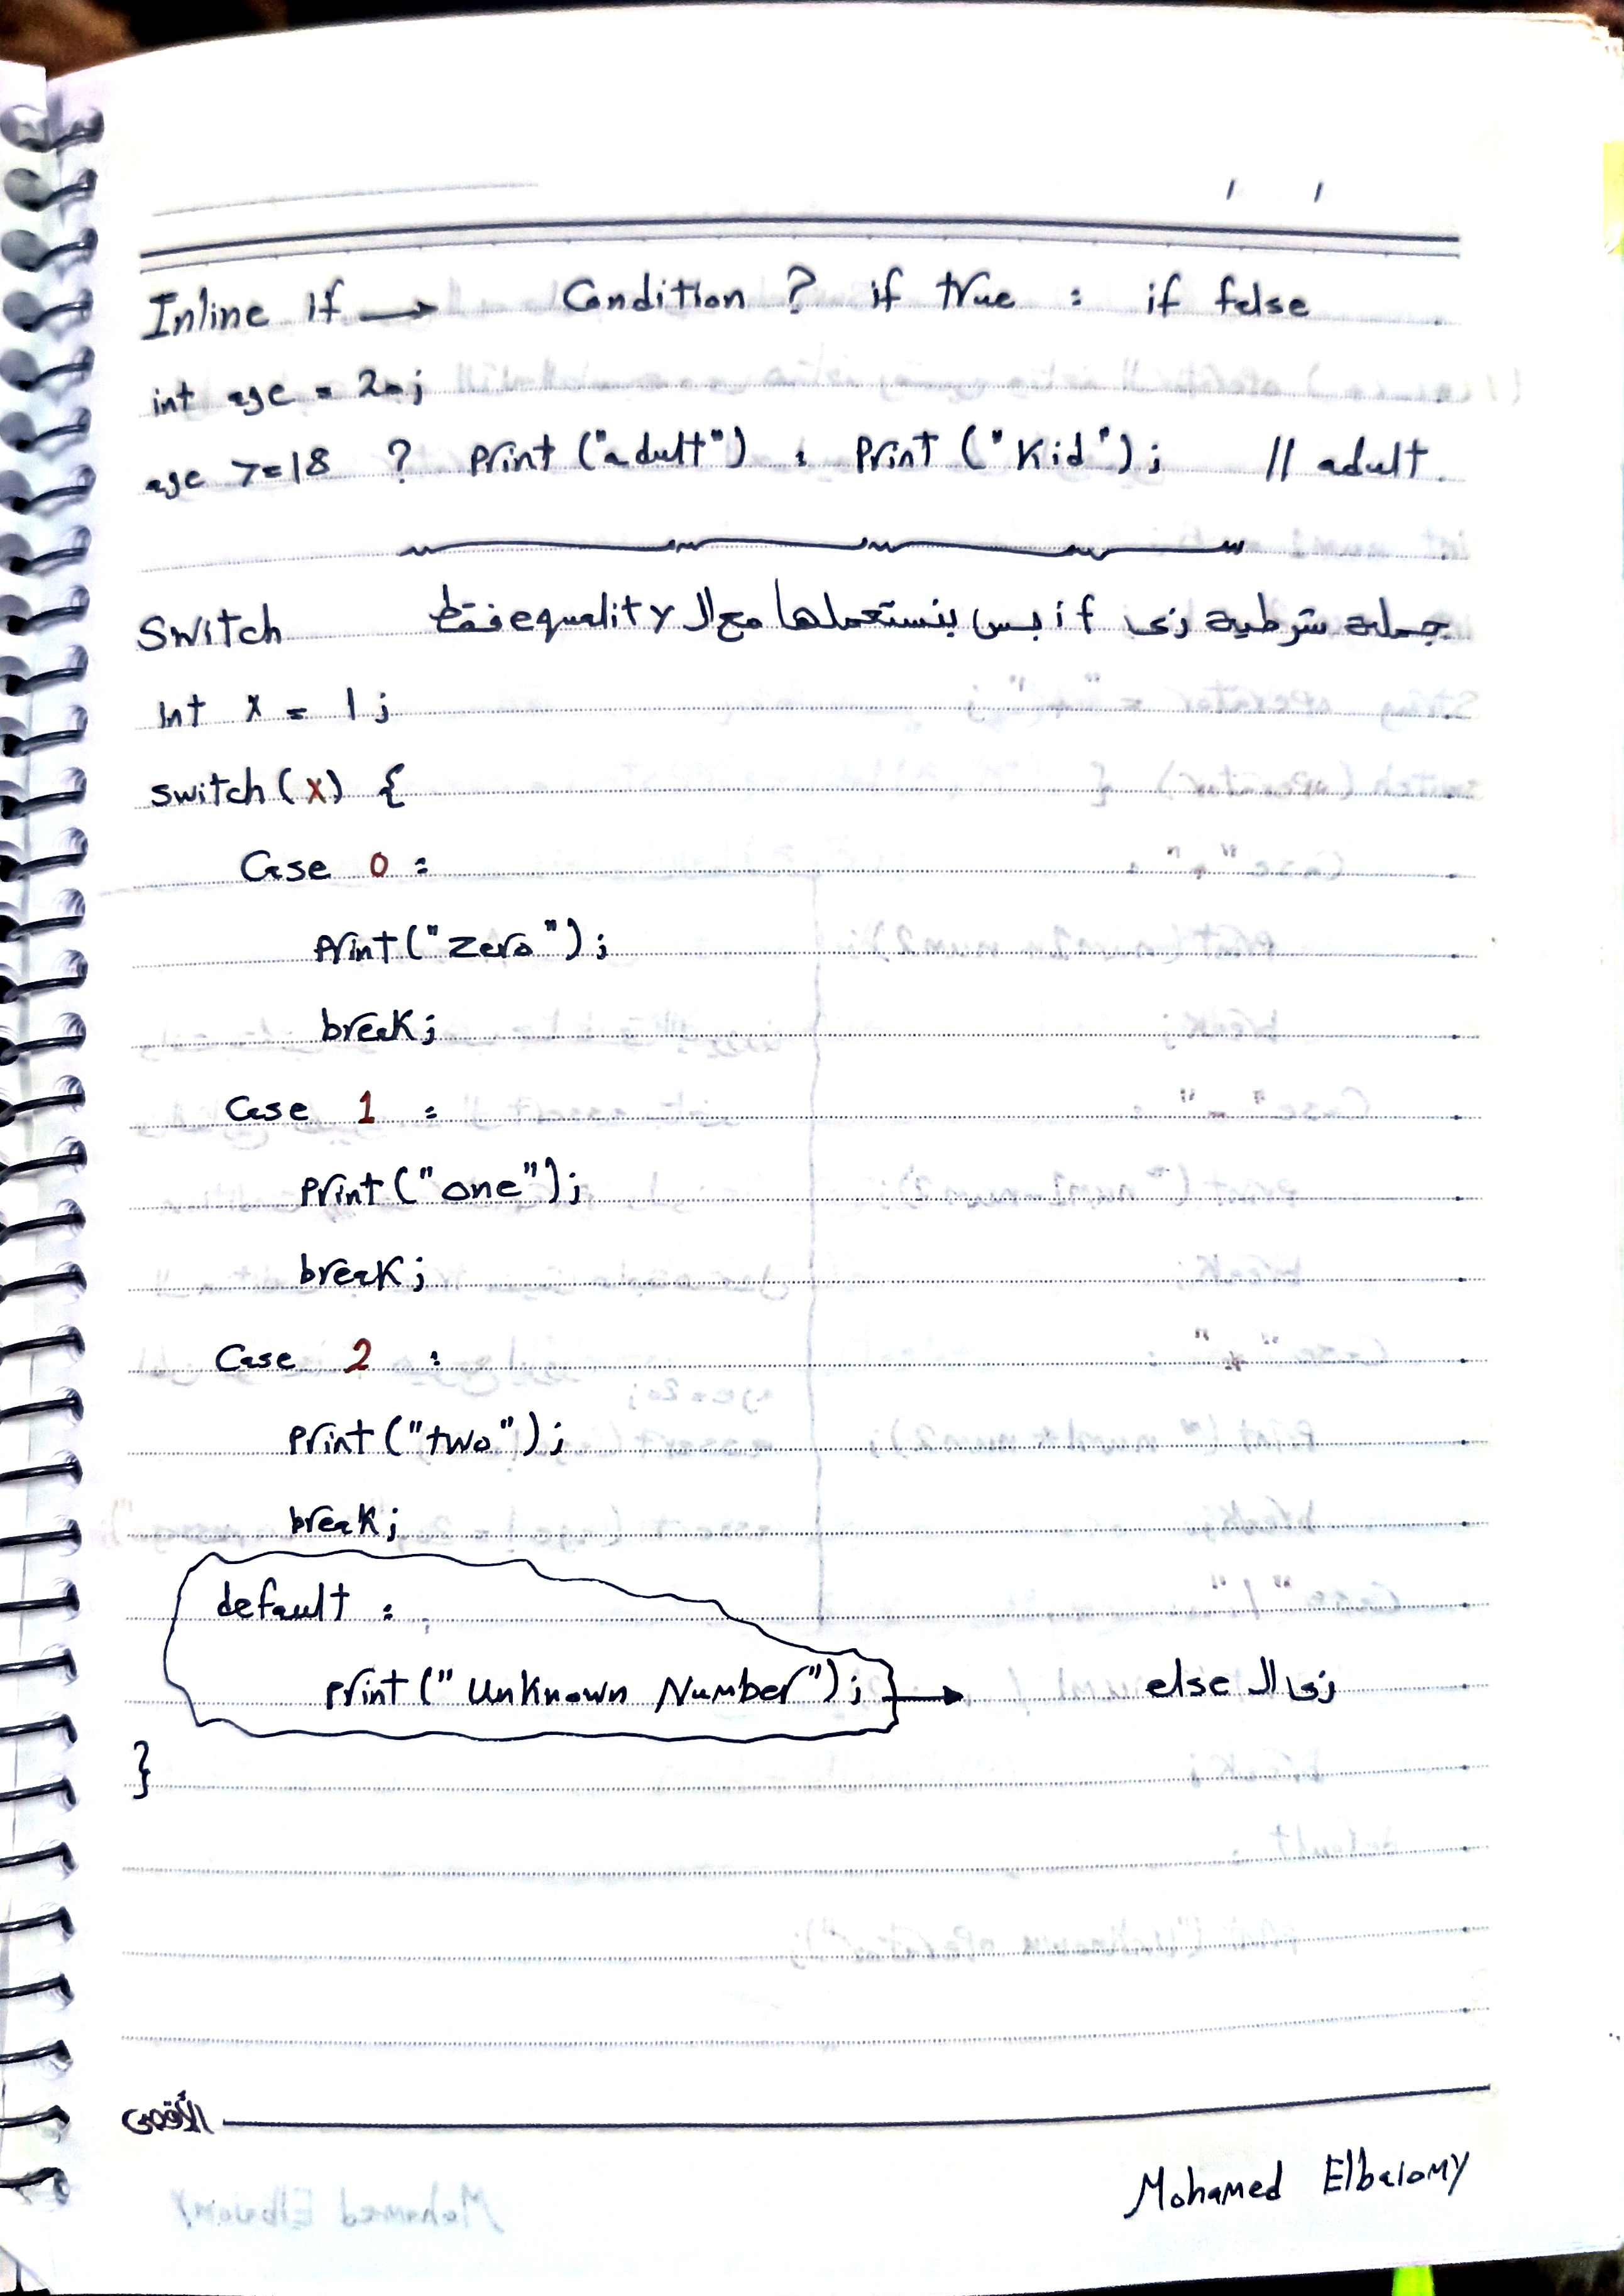 Inline if → Condition ? if true : if false
int age = 20;
age >= 18 ? print ("adult") : print ("Kid"); // adult
Switch جملة شرطية زى if بس بنستعملها مع ال equality فقط
int x = 1;
switch (x) {
Case 0 :
print("zero");
break;
Case 1 :
print("one");
break;
Case 2 :
print("two");
break;
default :
print("Unknown Number"); → زى ال else
}
الأقصى
Mohamed Elbalomy